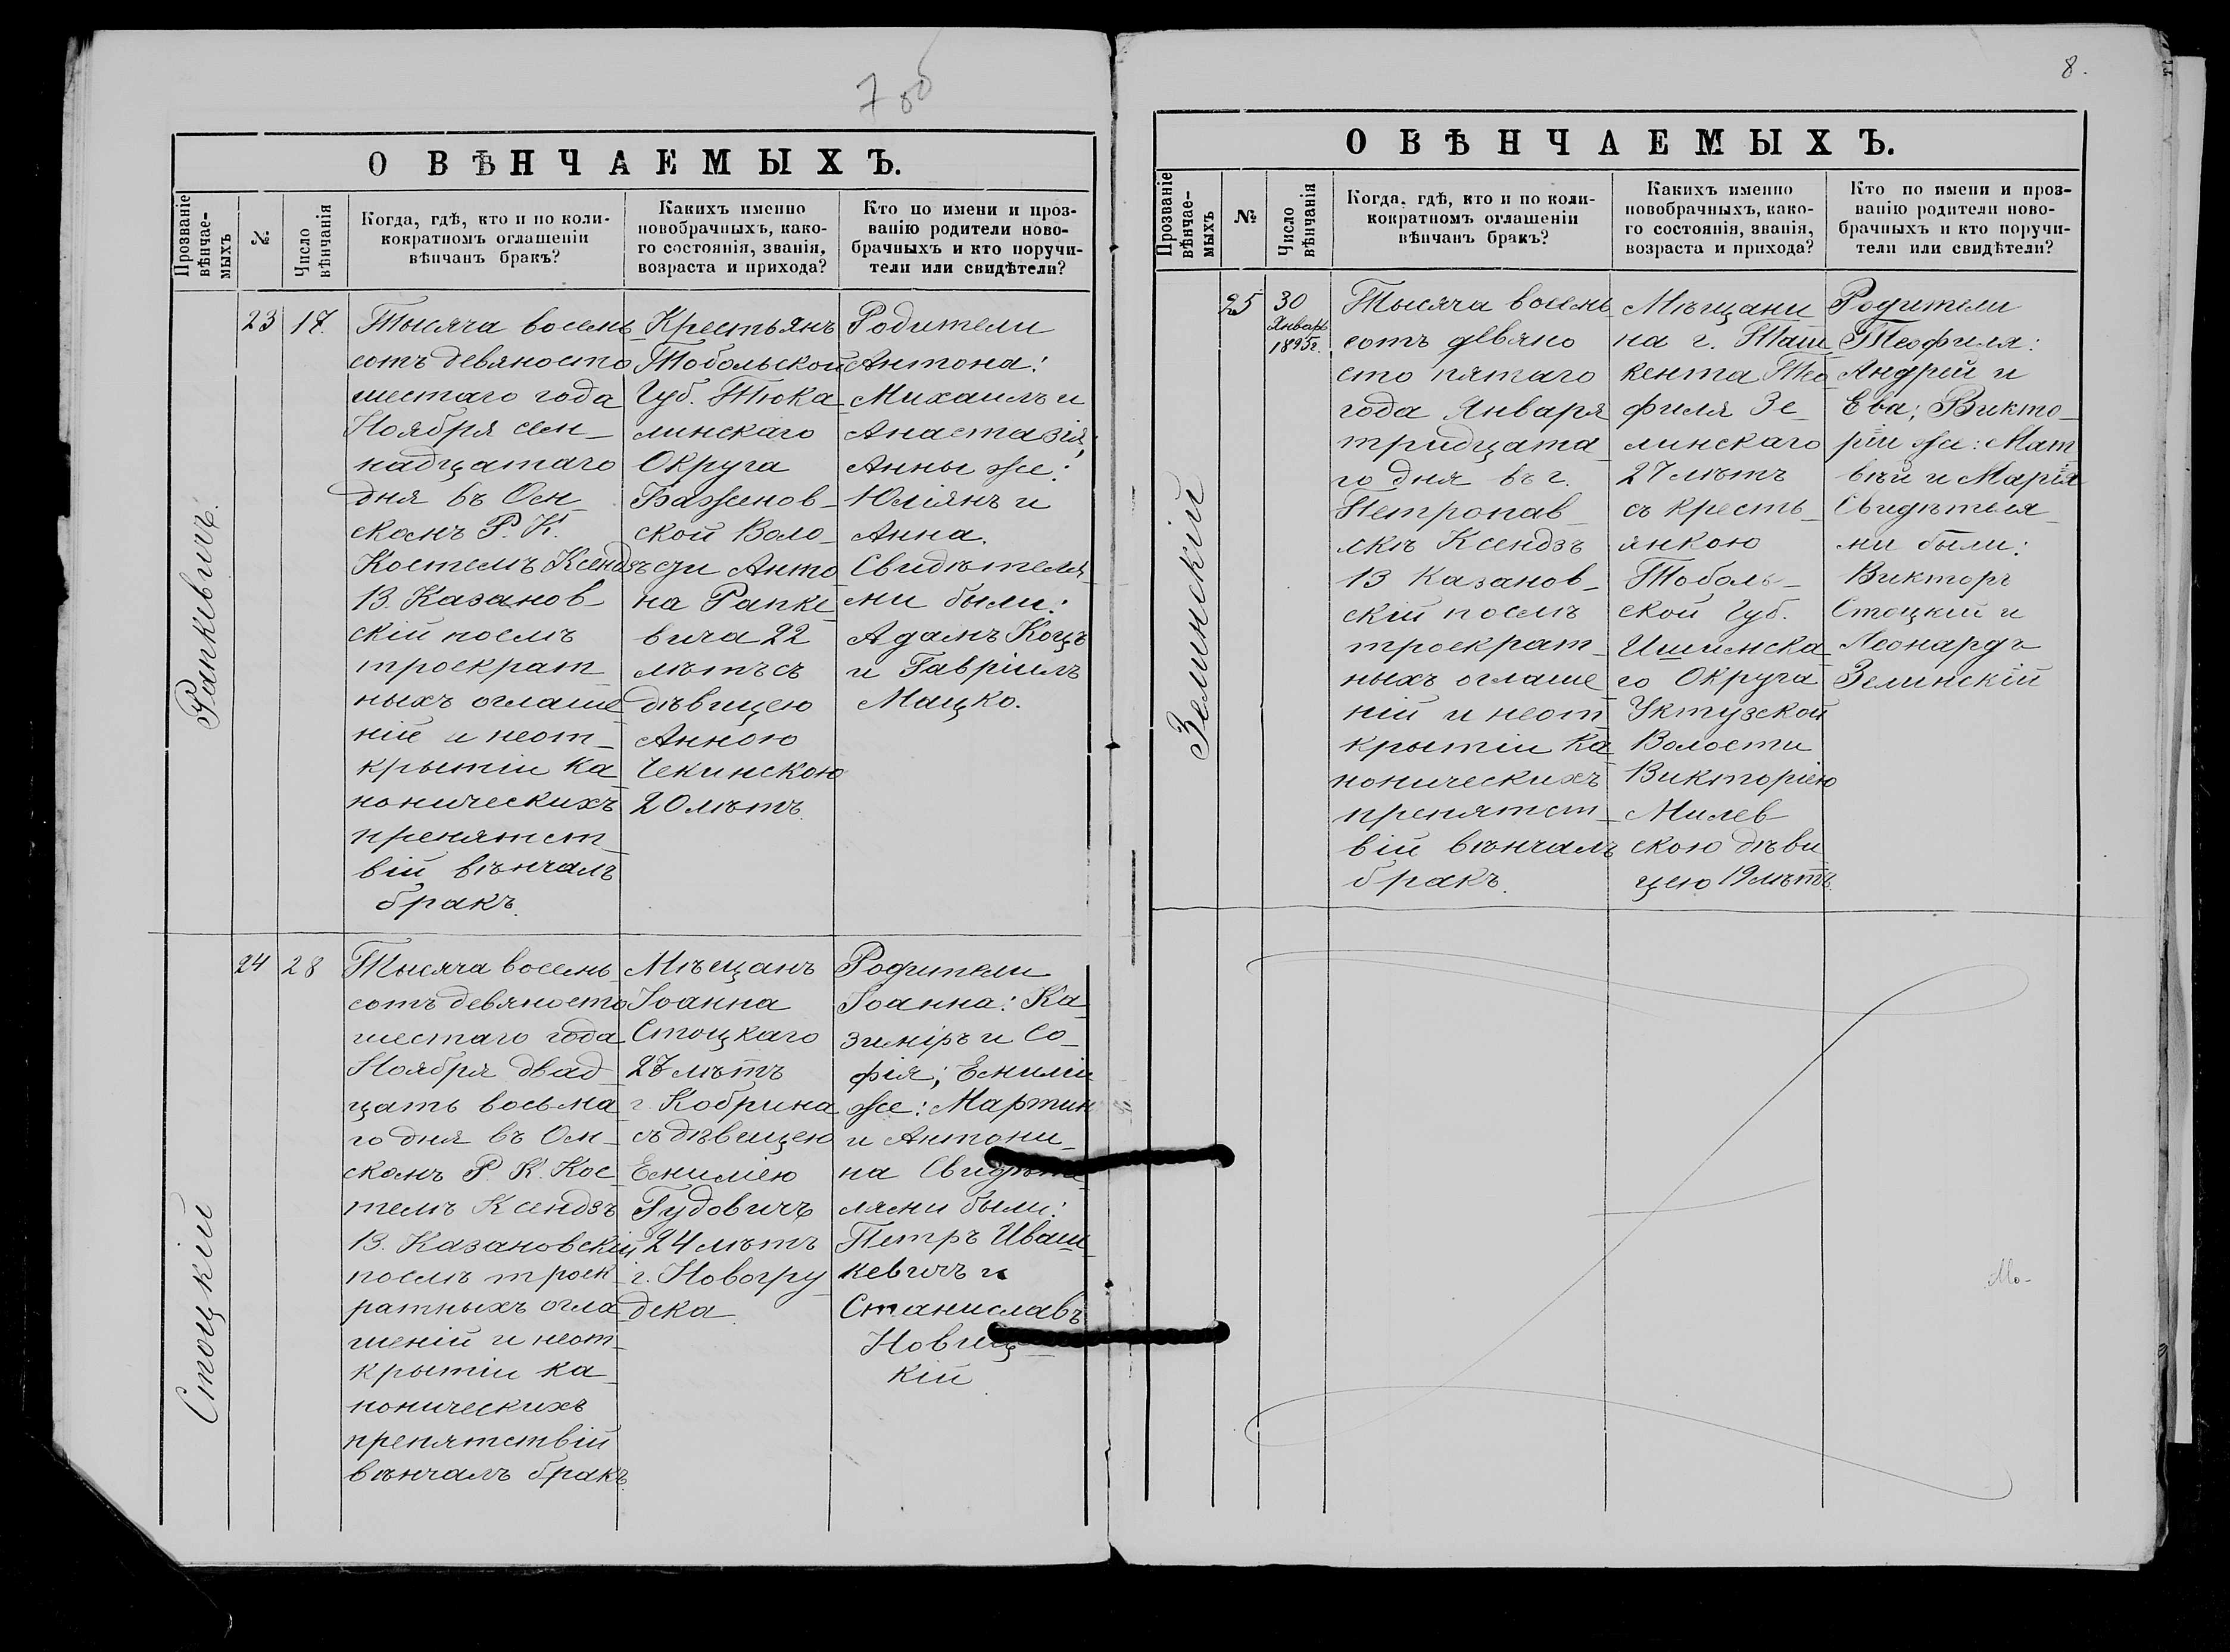 700
О ВѢНЧАЕМЫХЪ.
Прозваніе вѣнчае-мыхъ
№.
Число вѣнчанія
Когда, гдѣ, кто и по коли-
кократномъ оглашеніи
вѣнчанъ бракъ?
Какихъ именно
новобрачныхъ, како-
го состоянія, званія,
возраста и прихода?
Кто по имени и проз-
ванію родители ново-
брачныхъ и кто поручи-
тели или свидѣтели?
Рапкевичъ.
23
17.
Тысяча восемь
сотъ девяносто
шестаго года
Ноября сем-
надцатаго
дня въ Ом-
скомъ Р. К.
Костелѣ Ксендзъ
В. Казанов-
скій послѣ
троекрат-
ныхъ оглаше
ній и неот-
крытіи ка
ноническихъ
препятст-
вій вѣнчалъ
бракъ.
Крестьянъ
Тобольской
Губ. Тюка-
линскаго
Округа
Баженов-
ской Воло-
сти Анто
на Рапке
вича 22
лѣтъ съ
дѣвицею
Анною
Чекинскою
20 лѣтъ.
Родители
Антона:
Михаилъ и
Анастазія;
Анны же:
Юліянъ и
Анна.
Свидѣтеля
ми были:
Адамъ Коцъ
и Гавріилъ
Мацко.
Стоцкій
24
28
Тысяча восемь
сотъ девяносто
шестаго года
Ноября двад-
цать восьма
го дня въ Ом-
скомъ Р. К. Кос-
телѣ Ксендзъ
В. Казановскій
послѣ троек-
ратныхъ огла
шеній и неот-
крытіи ка-
ноническихъ
препятствій
вѣнчалъ бракъ.
Мѣщанъ
Іоанна
Стоцкаго
27 лѣтъ
г. Кобрина
съ дѣвицею
Емиліею
Гудовичъ
24 лѣтъ
г. Новогру-
дека.
Родители
Іоанна: Ка-
зиміръ и Со-
фія; Емиліи
же: Мартин
и Антони-
на Свидѣте
лями были:
Петръ Иваш-
кевичъ и
Станиславъ
Новиц-
кій
8.
О ВѢНЧАЕМЫХЪ.
Прозваніе вѣнчае-мыхъ
№
Число вѣнчанія
Когда, гдѣ, кто и по коли-
кократномъ оглашеніи
вѣнчанъ бракъ?
Какихъ именно
новобрачныхъ, како-
го состоянія, званія,
возраста и прихода?
Кто по имени и проз-
ванію родители ново-
брачныхъ и кто поручи-
тели или свидѣтели?
Зелинскій
25
30
Январь
1895г.
Тысяча восемь
сотъ девяно
сто пятаго
года Января
тридцата-
го дня въ г.
Петропав-
лскѣ Ксендзъ
В Казанов-
скій послѣ
троекрат-
ныхъ оглаше
ній и неот-
крытіи ка-
ноническихъ
препятст-
вій вѣнчалъ
бракъ.
Мѣщани
на г. Таш
кента Тео
филя Зе-
линскаго
27 лѣтъ
съ кресть-
янкою
Тоболь-
ской Губ.
Ишимска-
го Округа
Уктузской
Волости
Викторіею
Милев-
скою дѣви
цею 19 лѣтъ.
Родители
Теофиля:
Андрей и
Ева; Викто-
ріи же: Мат
вѣй и Марія
Свидѣтеля-
ми были:
Викторъ
Стоцкій и
Леонардъ
Зелинскій